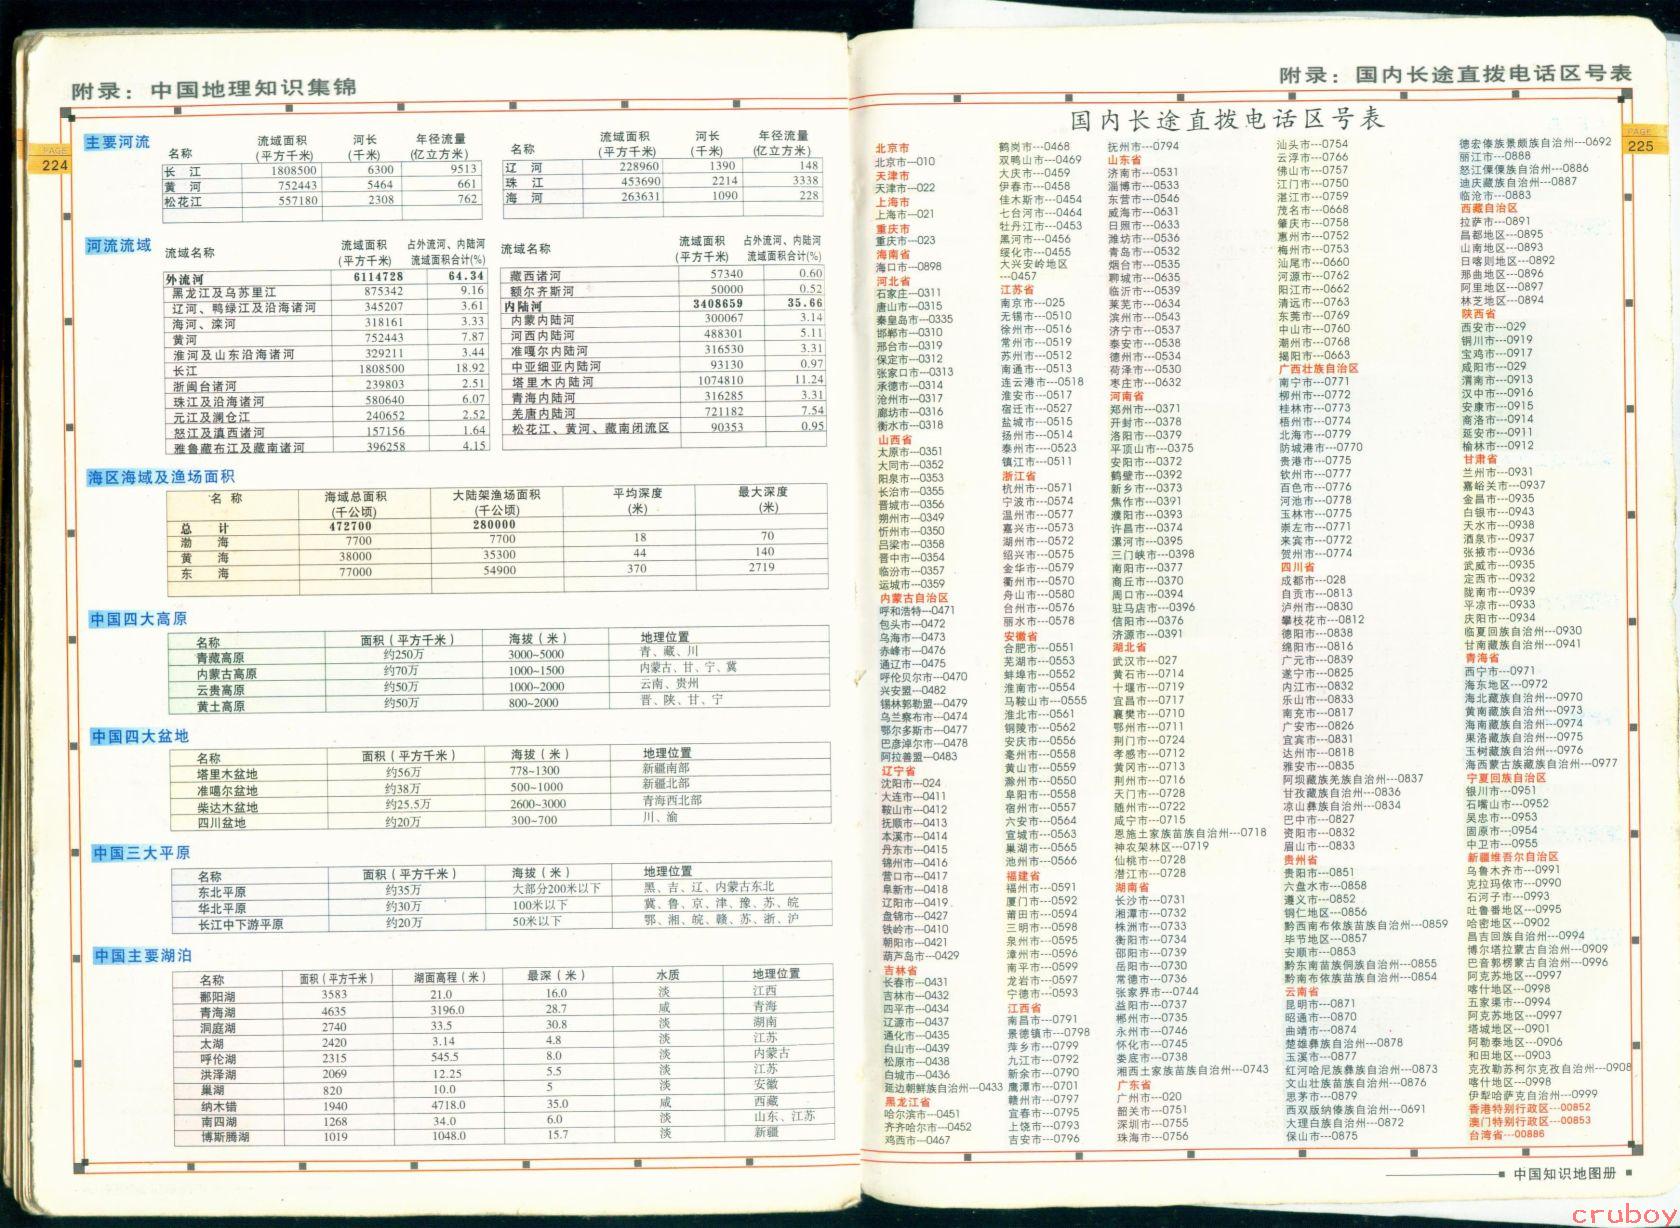 附录：中国地理知识集锦
PAGE
224
主要河流
名称 流域面积(平方千米) 河长(千米) 年径流量(亿立方米)
长 江 1808500 6300 9513
黄 河 752443 5464 661
松花江 557180 2308 762
名称 流域面积(平方千米) 河长(千米) 年径流量(亿立方米)
辽 河 228960 1390 148
珠 江 453690 2214 3338
海 河 263631 1090 228
河流流域
流域名称 流域面积(平方千米) 占外流河、内陆河流域面积合计(%)
外流河 6114728 64.34
黑龙江及乌苏里江 875342 9.16
辽河、鸭绿江及沿海诸河 345207 3.61
海河、滦河 318161 3.33
黄河 752443 7.87
淮河及山东沿海诸河 329211 3.44
长江 1808500 18.92
浙闽台诸河 239803 2.51
珠江及沿海诸河 580640 6.07
元江及澜仓江 240652 2.52
怒江及滇西诸河 157156 1.64
雅鲁藏布江及藏南诸河 396258 4.15
流域名称 流域面积(平方千米) 占外流河、内陆河流域面积合计(%)
藏西诸河 57340 0.60
额尔齐斯河 50000 0.52
内陆河 3408659 35.66
内蒙内陆河 300067 3.14
河西内陆河 488301 5.11
准噶尔内陆河 316530 3.31
中亚细亚内陆河 93130 0.97
塔里木内陆河 1074810 11.24
青海内陆河 316285 3.31
羌唐内陆河 721182 7.54
松花江、黄河、藏南闭流区 90353 0.95
海区海域及渔场面积
名 称 海域总面积(千公顷) 大陆架渔场面积(千公顷) 平均深度(米) 最大深度(米)
总 计 472700 280000
渤 海 7700 7700 18 70
黄 海 38000 35300 44 140
东 海 77000 54900 370 2719
中国四大高原
名称 面积（平方千米） 海拔（米） 地理位置
青藏高原 约250万 3000~5000 青、藏、川
内蒙古高原 约70万 1000~1500 内蒙古、甘、宁、冀
云贵高原 约50万 1000~2000 云南、贵州
黄土高原 约50万 800~2000 晋、陕、甘、宁
中国四大盆地
名称 面积（平方千米） 海拔（米） 地理位置
塔里木盆地 约56万 778~1300 新疆南部
准噶尔盆地 约38万 500~1000 新疆北部
柴达木盆地 约25.5万 2600~3000 青海西北部
四川盆地 约20万 300~700 川、渝
中国三大平原
名称 面积（平方千米） 海拔（米） 地理位置
东北平原 约35万 大部分200米以下 黑、吉、辽、内蒙古东北
华北平原 约30万 100米以下 冀、鲁、京、津、豫、苏、皖
长江中下游平原 约20万 50米以下 鄂、湘、皖、赣、苏、浙、沪
中国主要湖泊
名称 面积（平方千米） 湖面高程（米） 最深（米） 水质 地理位置
鄱阳湖 3583 21.0 16.0 淡 江西
青海湖 4635 3196.0 28.7 咸 青海
洞庭湖 2740 33.5 30.8 淡 湖南
太湖 2420 3.14 4.8 淡 江苏
呼伦湖 2315 545.5 8.0 淡 内蒙古
洪泽湖 2069 12.25 5.5 淡 江苏
巢湖 820 10.0 5 淡 安徽
纳木错 1940 4718.0 35.0 咸 西藏
南四湖 1268 34.0 6.0 淡 山东、江苏
博斯腾湖 1019 1048.0 15.7 淡 新疆
附录：国内长途直拨电话区号表
PAGE
225
国内长途直拨电话区号表
北京市
北京市---010
天津市
天津市---022
上海市
上海市---021
重庆市
重庆市---023
海南省
海口市---0898
河北省
石家庄---0311
唐山市---0315
秦皇岛市---0335
邯郸市---0310
邢台市---0319
保定市---0312
张家口市---0313
承德市---0314
沧州市---0317
廊坊市---0316
衡水市---0318
山西省
太原市---0351
大同市---0352
阳泉市---0353
长治市---0355
晋城市---0356
朔州市---0349
忻州市---0350
吕梁市---0358
晋中市---0354
临汾市---0357
运城市---0359
内蒙古自治区
呼和浩特---0471
包头市---0472
乌海市---0473
赤峰市---0476
通辽市---0475
呼伦贝尔市---0470
兴安盟---0482
锡林郭勒盟---0479
乌兰察布市---0474
鄂尔多斯市---0477
巴彦淖尔市---0478
阿拉善盟---0483
辽宁省
沈阳市---024
大连市---0411
鞍山市---0412
抚顺市---0413
本溪市---0414
丹东市---0415
锦州市---0416
营口市---0417
阜新市---0418
辽阳市---0419
盘锦市---0427
铁岭市---0410
朝阳市---0421
葫芦岛市---0429
吉林省
长春市---0431
吉林市---0432
四平市---0434
辽源市---0437
通化市---0435
白山市---0439
松原市---0438
白城市---0436
延边朝鲜族自治州---0433
黑龙江省
哈尔滨市---0451
齐齐哈尔市---0452
鸡西市---0467
鹤岗市---0468
双鸭山市---0469
大庆市---0459
伊春市---0458
佳木斯市---0454
七台河市---0464
牡丹江市---0453
黑河市---0456
绥化市---0455
大兴安岭地区
---0457
江苏省
南京市---025
无锡市---0510
徐州市---0516
常州市---0519
苏州市---0512
南通市---0513
连云港市---0518
淮安市---0517
宿迁市---0527
盐城市---0515
扬州市---0514
泰州市---0523
镇江市---0511
浙江省
杭州市---0571
宁波市---0574
温州市---0577
嘉兴市---0573
湖州市---0572
绍兴市---0575
金华市---0579
衢州市---0570
舟山市---0580
台州市---0576
丽水市---0578
安徽省
合肥市---0551
芜湖市---0553
蚌埠市---0552
淮南市---0554
马鞍山市---0555
淮北市---0561
铜陵市---0562
安庆市---0556
亳州市---0558
黄山市---0559
滁州市---0550
阜阳市---0558
宿州市---0557
六安市---0564
宣城市---0563
巢湖市---0565
池州市---0566
福建省
福州市---0591
厦门市---0592
莆田市---0594
三明市---0598
泉州市---0595
漳州市---0596
南平市---0599
龙岩市---0597
宁德市---0593
江西省
南昌市---0791
景德镇市---0798
萍乡市---0799
九江市---0792
新余市---0790
鹰潭市---0701
赣州市---0797
宜春市---0795
上饶市---0793
吉安市---0796
抚州市---0794
山东省
济南市---0531
淄博市---0533
东营市---0546
威海市---0631
日照市---0633
潍坊市---0536
青岛市---0532
烟台市---0535
聊城市---0635
临沂市---0539
莱芜市---0634
滨州市---0543
济宁市---0537
泰安市---0538
德州市---0534
荷泽市---0530
枣庄市---0632
河南省
郑州市---0371
开封市---0378
洛阳市---0379
平顶山市---0375
安阳市---0372
鹤壁市---0392
新乡市---0373
焦作市---0391
濮阳市---0393
许昌市---0374
漯河市---0395
三门峡市---0398
南阳市---0377
商丘市---0370
周口市---0394
驻马店市---0396
信阳市---0376
济源市---0391
湖北省
武汉市---027
黄石市---0714
十堰市---0719
宜昌市---0717
襄樊市---0710
鄂州市---0711
荆门市---0724
孝感市---0712
黄冈市---0713
荆州市---0716
天门市---0728
随州市---0722
咸宁市---0715
恩施土家族苗族自治州---0718
神农架林区---0719
仙桃市---0728
潜江市---0728
湖南省
长沙市---0731
湘潭市---0732
株洲市---0733
衡阳市---0734
邵阳市---0739
岳阳市---0730
常德市---0736
张家界市---0744
益阳市---0737
郴州市---0735
永州市---0746
怀化市---0745
娄底市---0738
湘西土家族苗族自治州---0743
广东省
广州市---020
韶关市---0751
深圳市---0755
珠海市---0756
汕头市---0754
云浮市---0766
佛山市---0757
江门市---0750
湛江市---0759
茂名市---0668
肇庆市---0758
惠州市---0752
梅州市---0753
汕尾市---0660
河源市---0762
阳江市---0662
清远市---0763
东莞市---0769
中山市---0760
潮州市---0768
揭阳市---0663
广西壮族自治区
南宁市---0771
柳州市---0772
桂林市---0773
梧州市---0774
北海市---0779
防城港市---0770
贵港市---0775
钦州市---0777
百色市---0776
河池市---0778
玉林市---0775
崇左市---0771
来宾市---0772
贺州市---0774
四川省
成都市---028
自贡市---0813
泸州市---0830
攀枝花市---0812
德阳市---0838
绵阳市---0816
广元市---0839
遂宁市---0825
内江市---0832
乐山市---0833
南充市---0817
广安市---0826
宜宾市---0831
达州市---0818
雅安市---0835
阿坝藏族羌族自治州---0837
甘孜藏族自治州---0836
凉山彝族自治州---0834
巴中市---0827
资阳市---0832
眉山市---0833
贵州省
贵阳市---0851
六盘水市---0858
遵义市---0852
铜仁地区---0856
黔西南布依族苗族自治州---0859
毕节地区---0857
安顺市---0853
黔东南苗族侗族自治州---0855
黔南布依族苗族自治州---0854
云南省
昆明市---0871
昭通市---0870
曲靖市---0874
楚雄彝族自治州---0878
玉溪市---0877
红河哈尼族彝族自治州---0873
文山壮族苗族自治州---0876
思茅市---0879
西双版纳傣族自治州---0691
大理白族自治州---0872
保山市---0875
德宏傣族景颇族自治州---0692
丽江市---0888
怒江傈僳族自治州---0886
迪庆藏族自治州---0887
临沧市---0883
西藏自治区
拉萨市---0891
昌都地区---0895
山南地区---0893
日喀则地区---0892
那曲地区---0896
阿里地区---0897
林芝地区---0894
陕西省
西安市---029
铜川市---0919
宝鸡市---0917
咸阳市---029
渭南市---0913
汉中市---0916
安康市---0915
商洛市---0914
延安市---0911
榆林市---0912
甘肃省
兰州市---0931
嘉峪关市---0937
金昌市---0935
白银市---0943
天水市---0938
酒泉市---0937
张掖市---0936
武威市---0935
定西市---0932
陇南市---0939
平凉市---0933
庆阳市---0934
临夏回族自治州---0930
甘南藏族自治州---0941
青海省
西宁市---0971
海东地区---0972
海北藏族自治州---0970
黄南藏族自治州---0973
海南藏族自治州---0974
果洛藏族自治州---0975
玉树藏族自治州---0976
海西蒙古族藏族自治州---0977
宁夏回族自治区
银川市---0951
石嘴山市---0952
吴忠市---0953
固原市---0954
中卫市---0955
新疆维吾尔自治区
乌鲁木齐市---0991
克拉玛依市---0990
石河子市---0993
吐鲁番地区---0995
哈密地区---0902
昌吉回族自治州---0994
博尔塔拉蒙古自治州---0909
巴音郭楞蒙古自治州---0996
阿克苏地区---0997
喀什地区---0998
五家渠市---0994
阿克苏地区---0997
塔城地区---0901
阿勒泰地区---0906
和田地区---0903
克孜勒苏柯尔克孜自治州---0908
喀什地区---0998
伊犁哈萨克自治州---0999
香港特别行政区---00852
澳门特别行政区---00853
台湾省---00886
中国知识地图册
cruboy